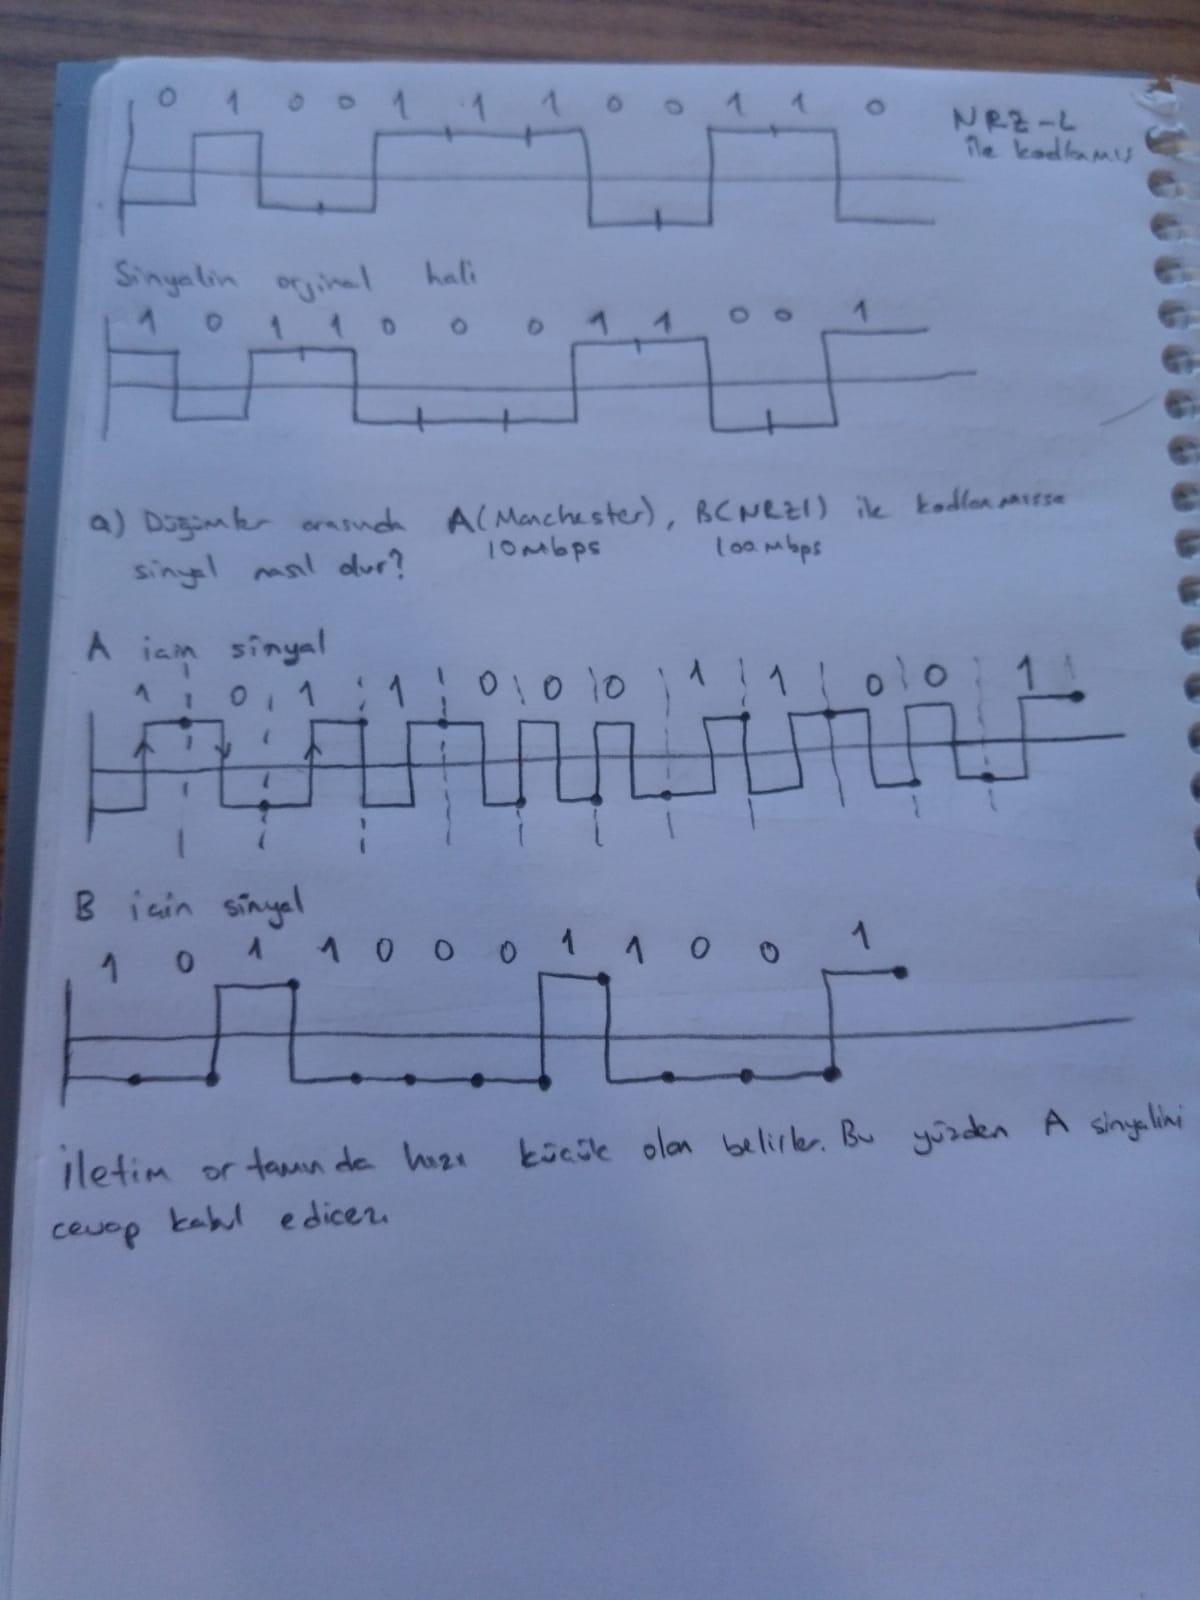 0 1 0 0 1 1 1 0 0 1 1 0
NRZ-L
ile kodlamış
Sinyalin orjinal hali
1 0 1 1 0 0 0 1 1 0 0 1
a) Düğümler arasında A(Manchester), B(NRZI) ile kodlanmışsa
10Mbps 100Mbps
sinyal nasıl olur?
A için sinyal
1 0 1 1 0 0 0 1 1 0 0 1
B için sinyal
1 0 1 1 0 0 0 1 1 0 0 1
İletim ortamında hızı küçük olan belirler. Bu yüzden A sinyalini
cevap kabul edicez.